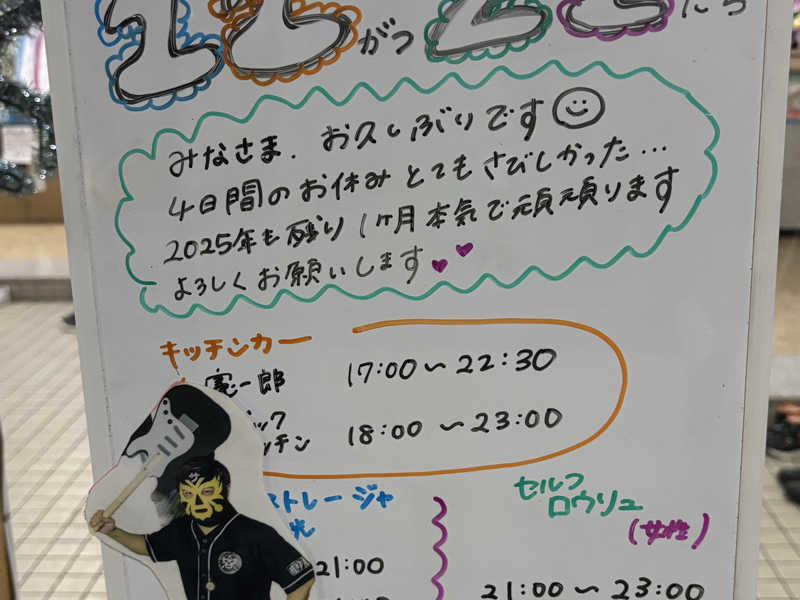 11がつ2
みなさま、お久しぶりです
4日間のお休みとてもさびしかった...
2025年も残り1ヶ月本気で頑張ります
よろしくお願いします
キッチンカー
憲一郎 17:00〜22:30
ック
ッチン 18:00〜23:00
ストレージャ
光
21:00
セルフ
ロウリュ
(女性)
21:00〜23:00